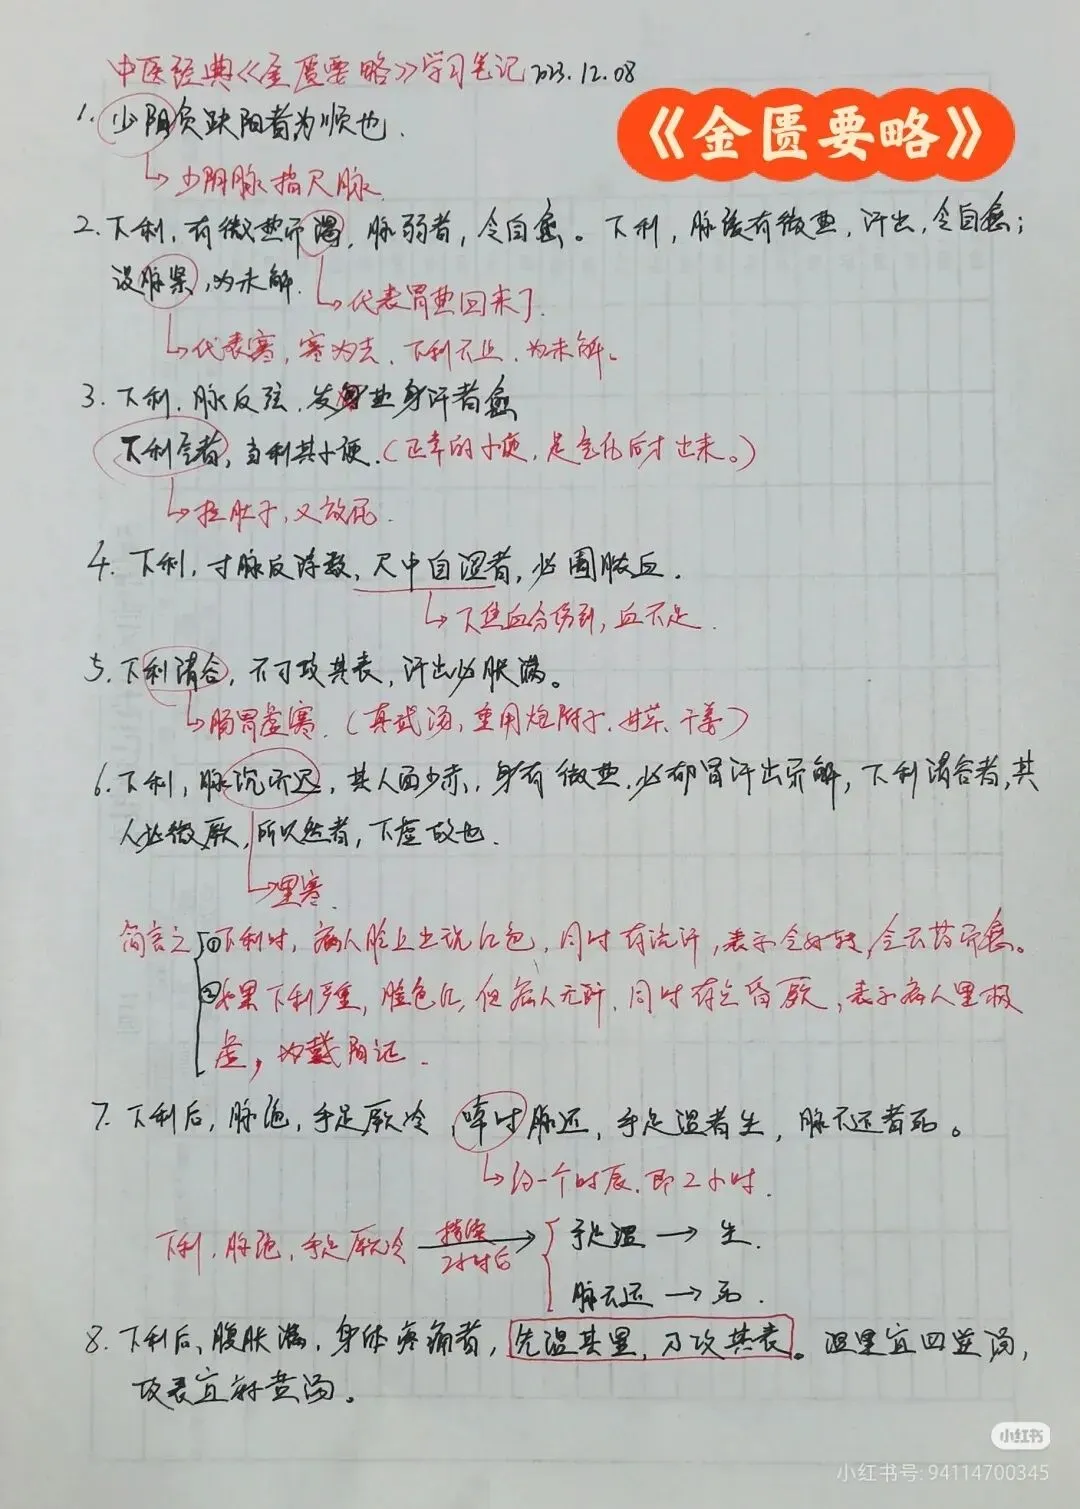 中医经典《金匮要略》学习笔记 2023.12.08
《金匮要略》
1. 少阴负趺阳者为顺也.
少阴脉指尺脉.
2. 下利,有微热而渴,脉弱者,令自愈。下利,脉数有微热,汗出,令自愈;
设脉紧,为未解.
代表胃热回来了.
代表寒,寒为去.下利不止.为未解。
3. 下利.脉反弦.发热身汗者愈
下利气者,当利其小便.(正常的小便,是气化后才出来。)
拉肚子,又放屁.
4. 下利,寸脉反浮数,尺中自涩者,必圊脓血.
下焦血分伤到,血不足.
5. 下利清谷,不可攻其表,汗出必胀满。
肠胃虚寒.(真武汤,重用炮附子.甘草.干姜)
6. 下利,脉沉而迟,其人面少赤,身有微热.必郁冒汗出而解,下利清谷者,其
人必微厥,所以然者,下虚故也.
里寒.
简言之
①下利时,病人脸上出现红色,同时有流汗,表示会好转,会不药而愈。
②如果下利严重,脸色红,但病人无汗,同时有点昏厥,表示病人里极
虚,为戴阳证.
7. 下利后,脉绝,手足厥冷,晬时脉还,手足温者生,脉不还者死。
约一个时辰.即2小时.
下利,脉绝,手足厥冷 持续 2小时后
手足温→生.
脉不还→死.
8. 下利后,腹胀满,身体疼痛者,先温其里,乃攻其表。温里宜四逆汤,
攻表宜桂枝汤。
小红书
小红书号: 94114700345